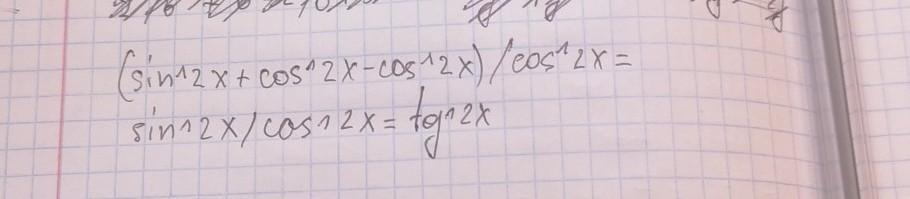 (sin^2x+cos^2x-cos^2x)/cos^2x=
sin^2x/cos^2x=tg^2x